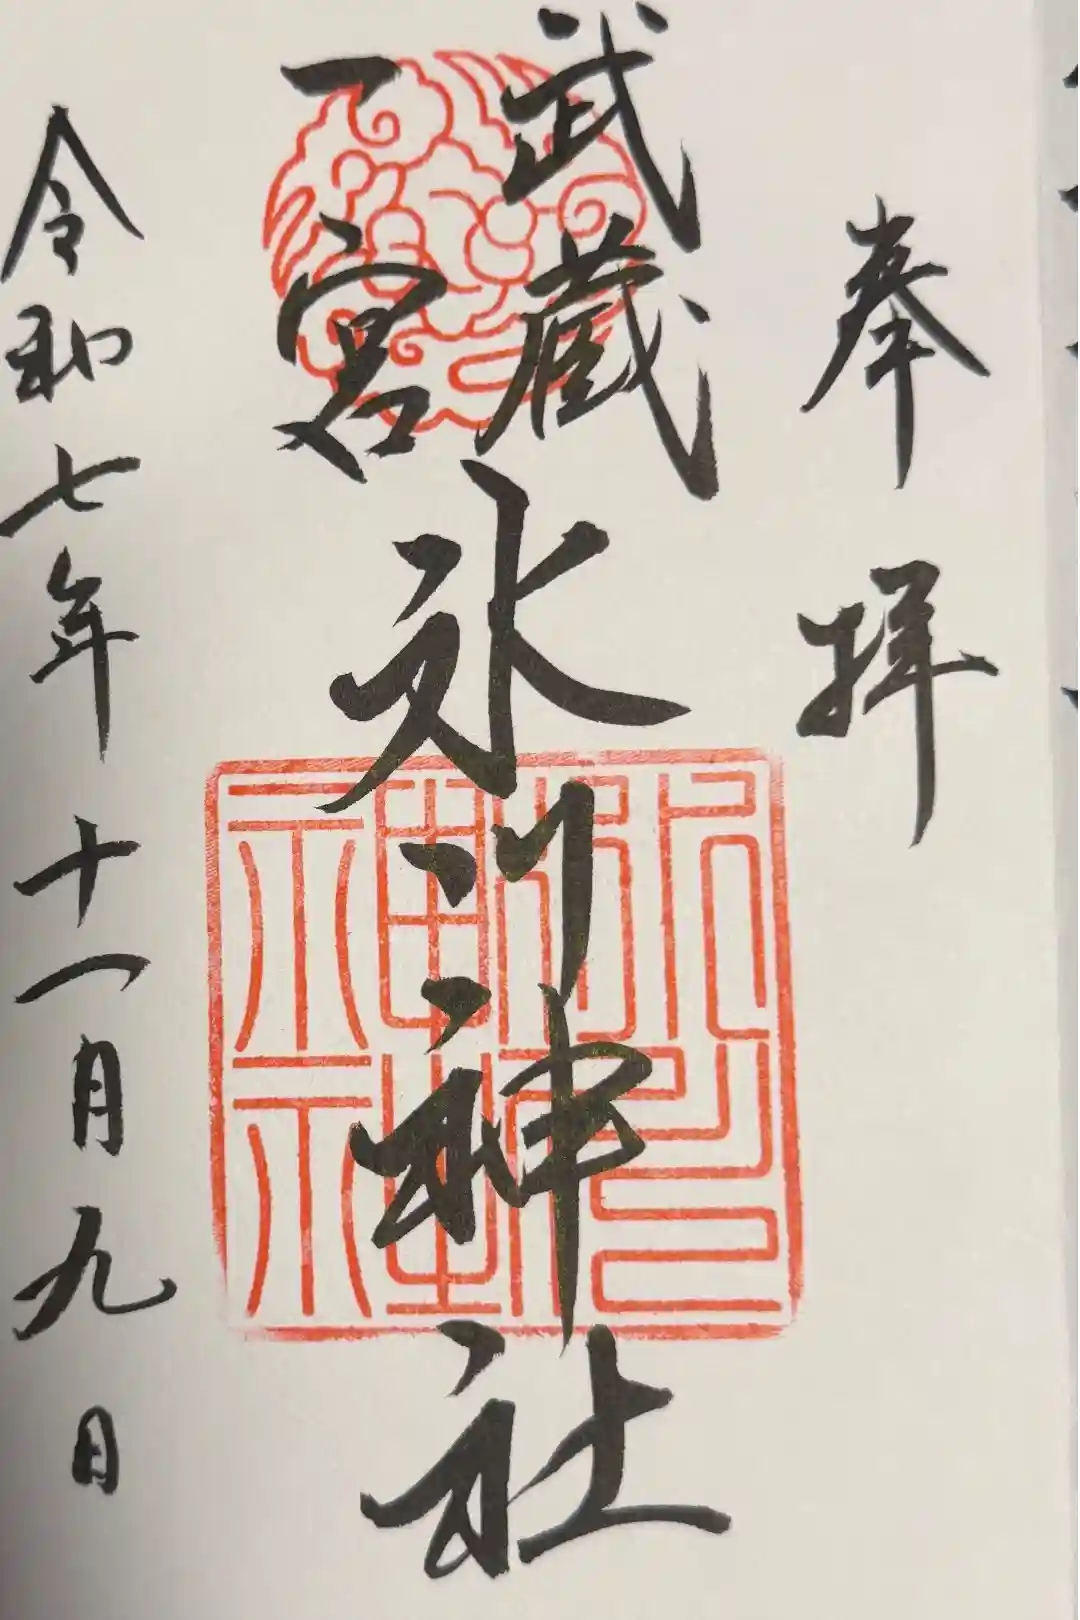 奉拝
武蔵
一宮
氷川神社
氷川神社
令和七年十一月九日